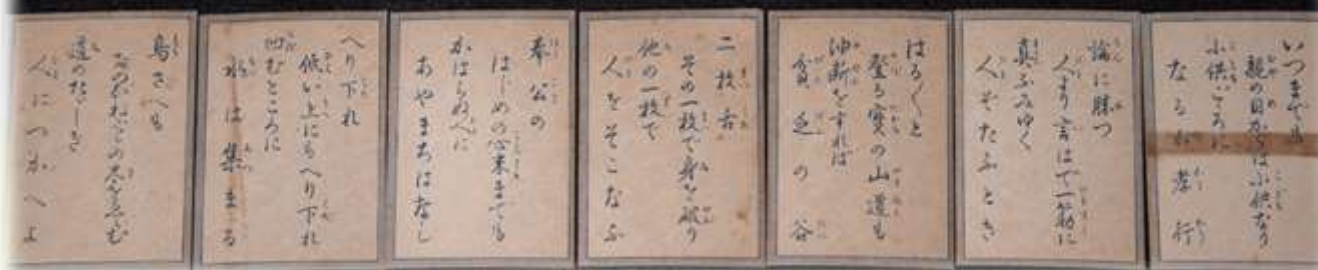 いつまでも
親の目からは小供なり
小供ごころに
なるが孝行
論に勝つ
人より言はで一筋に
真ふみゆく
人ぞたふとき
はる〲と
登る寳の山道も
油断をすれば
貧乏の谷
二枚舌
その一枚で身を破り
他の一枚で
人をそこなふ
奉公の
はじめの心末までも
かはらぬ人に
あやまちはなし
へり下れ
低い上にもへり下れ
凹むところに
水は集まる
鳥さへも
道のたゞしき
人につかへよ